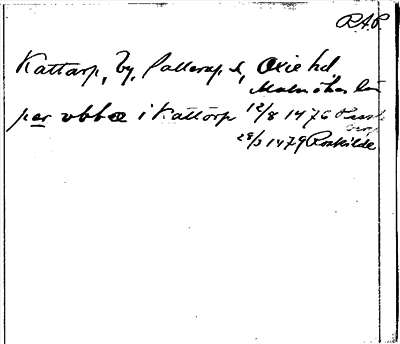 R.A.P.
Kattarp, by, Lallerup s, Oxie hd.
Malmöhus län
per vbbæ i Kattorp 12/8 1476
28/3 1479 Roskilde